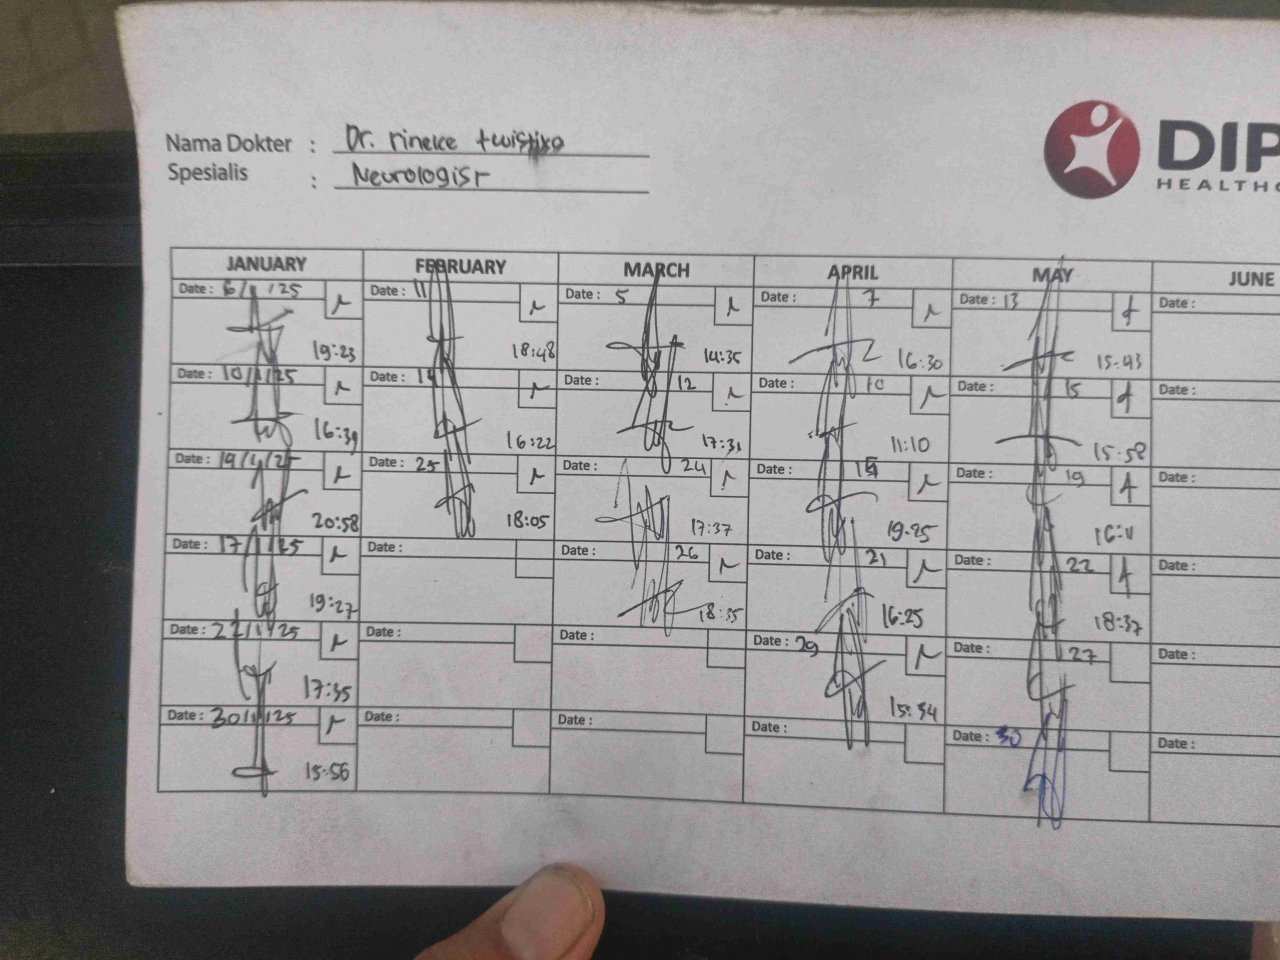 Nama Dokter : Dr. rineke twistixa
Spesialis : Neurologist
DIP
HEALTHC
JANUARY FEBRUARY MARCH APRIL MAY JUNE
Date : 6/1/25 Date : 11 Date : 5 Date : 7 Date : 13 Date :
19:23 18:48 14:35 16:30 15:43
Date : 10/1/25 Date : Date : 12 Date : 10 Date : 15 Date :
16:39 16:22 17:31 11:10 15:58
Date : Date : 25 Date : 24 Date : Date : 19 Date :
20:58 18:05 17:37 19.25
Date : 17/1/25 Date : Date : 26 Date : 21 Date : 22 Date :
19:27 18:35 16:25 18:37
Date : 22/1/25 Date : Date : Date : 29 Date : 27 Date :
17:35 15:54
Date : 30/1/25 Date : Date : Date : Date : 30 Date :
15:56